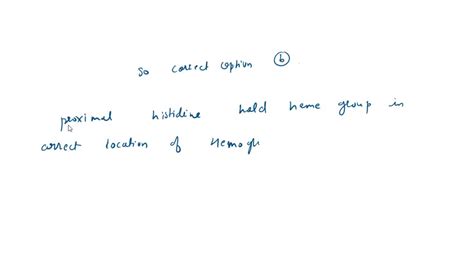 so correct option (b)
proximal histidine hold heme group in
correct location of Hemogl